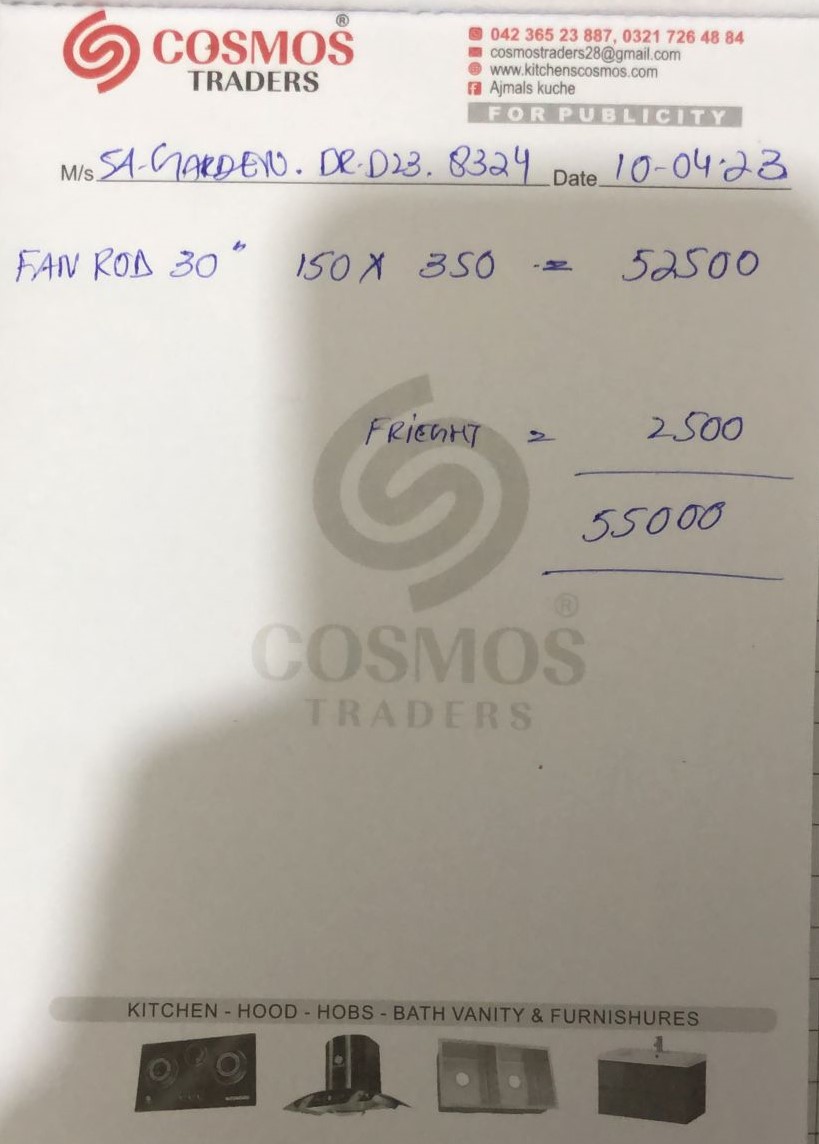 COSMOS ®
TRADERS
042 365 23 887, 0321 726 48 84
cosmostraders28@gmail.com
www.kitchenscosmos.com
Ajmals kuche
FOR PUBLICITY
M/s SA-GARDEN. DR-D23. 8324 Date 10-04-23
FAN ROD 30" 150 X 350 = 52500
FRIEGHT = 2500
55000
®
COSMOS
TRADERS
KITCHEN - HOOD - HOBS - BATH VANITY & FURNISHURES